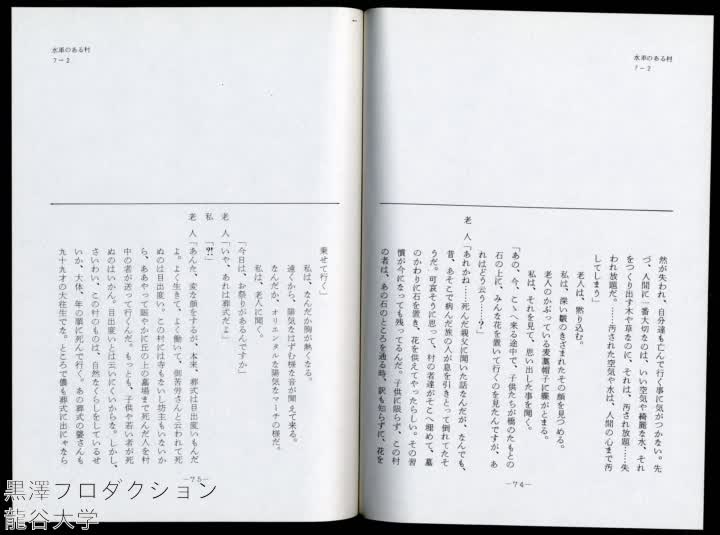 水車のある村
7－2
然が失われ、自分達も亡んで行く事に気がつかない。先
づ、人間に一番大切なのは、いい空気や綺麗な水、それ
をつくり出す木や草なのに、それは、汚され放題……失
われ放題だ。……汚された空気や水は、人間の心まで汚
してしまう」
老人は、黙り込む。
私は、深い皺のきざまれたその顔を見つめる。
老人のかぶっている麦藁帽子に蝶がとまる。
私は、それを見て、思い出した事を聞く。
「あの、今、こゝへ来る途中で、子供たちが橋のたもとの
石の上に、みんな花を置いて行くのを見たんですが、あ
れはどう云う……？」
老　人「あれかね……死んだ親父に聞いた話なんだが、なんでも、
昔、あそこで病んだ旅の人が息を引きとって倒れてたそ
うだ。可哀そうに思って、村の者達がそこへ埋めて、墓
のかわりに石を置き、花を供えてやったらしい。その習
慣が今になっても残ってるんだ。子供に限らず、この村
の者は、あの石のところを通る時、訳も知らずに、花を
—74—
水車のある村
7－2
乗せて行く」
私は、なんだか胸が熱くなる。
遠くから、陽気なはずむ様な音が聞えて来る。
なんだか、オリエンタルな陽気なマーチの様だ。
私は、老人に聞く。
「今日は、お祭りがあるんですか」
老　人「いや、あれは葬式だよ」
私　「⁈」
老　人「あんた、変な顔をするが、本来、葬式は目出度いもんだ
よ。よく生きて、よく働いて、御苦労さんと云われて死
ぬのは目出度い。この村には寺もないし坊主もいないか
ら、ああやって賑やかに丘の上の墓場まで死んだ人を村
中の者が送って行くんだ。もっとも、子供や若い者が死
ぬのはいかん。目出度いとは云いにくいからな。しかし、
さいわい、この村のものは、自然なくらしをしているせ
いか、大体、年の順に死んで行く。あの葬式の婆さんも
九十九才の大往生でな。ところで儂も葬式に出にゃなら
—75—
黒澤プロダクション
龍谷大学